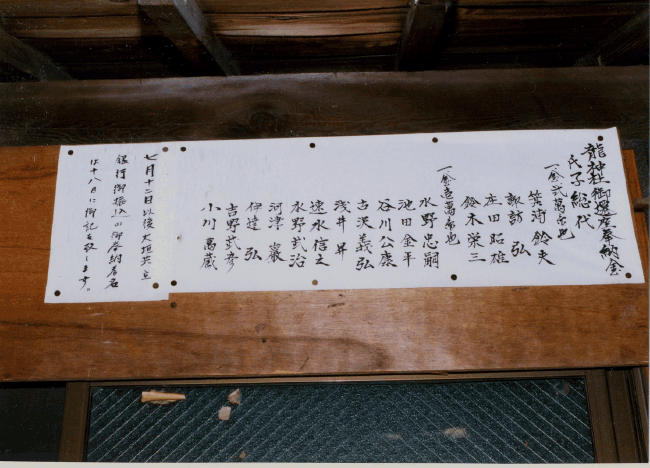 龍神社御遷座奉納金
氏子総代
一金弐萬円也
筑濤鈴夫
諏訪弘
庄田昭雄
鈴木栄三
一金壱萬円也
水野忠嗣
池田金平
谷川公康
古沢義弘
浅井昇
速水信之
水野武治
河津巌
伊達弘
吉野武彦
小川萬蔵
七月十二日以後大垣共立
銀行御振込の御奉納者名
は十八日に御記を致します。